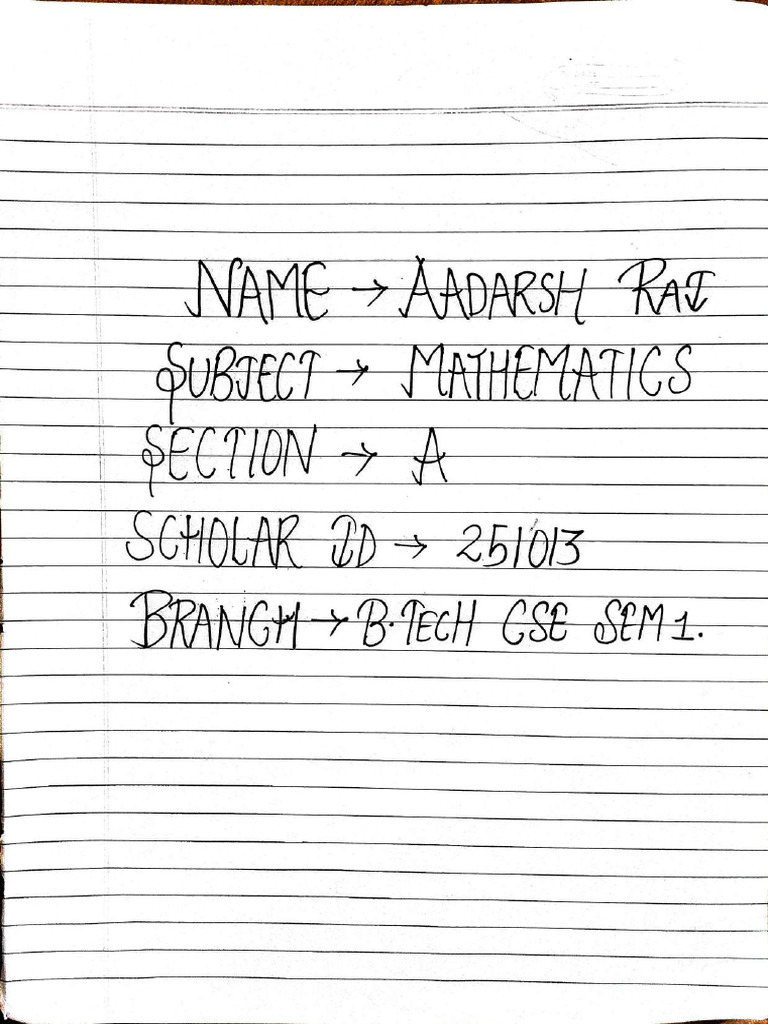 NAME → AADARSH RAI
SUBJECT → MATHEMATICS
SECTION → A
SCHOLAR ID → 251013
BRANCH → B.TECH CSE SEM 1.